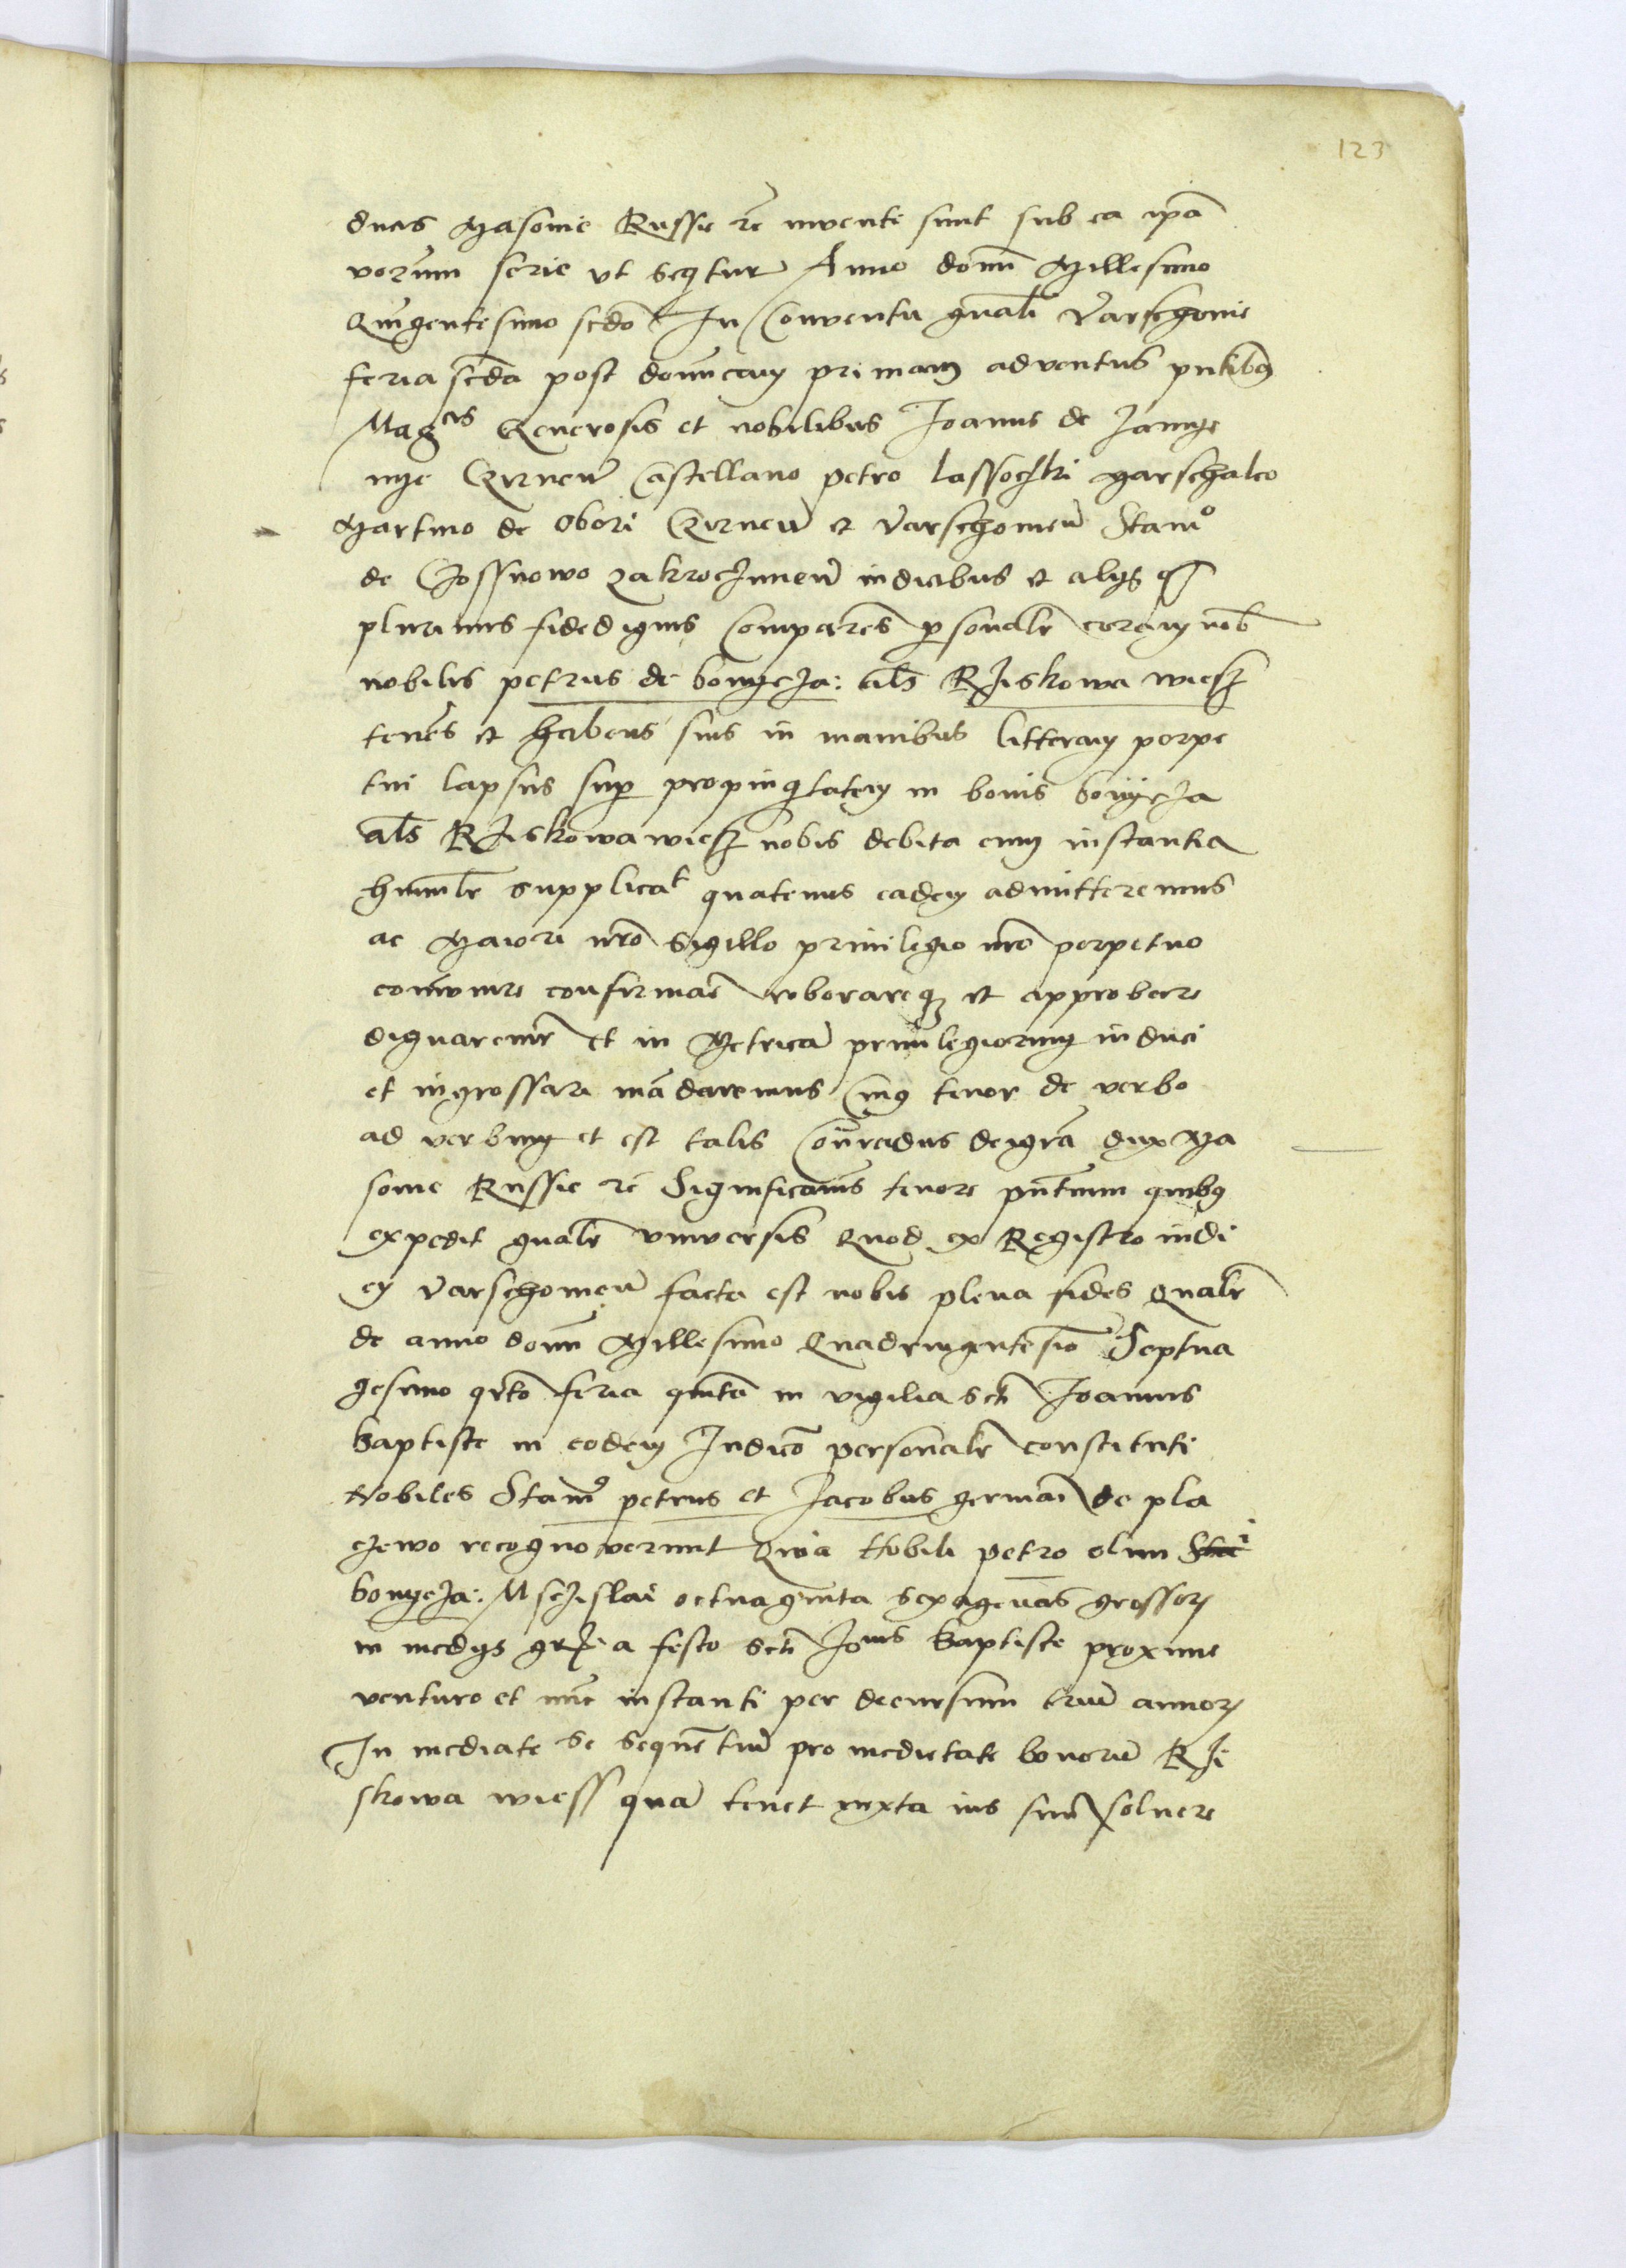 123
duces Masovie Russie rc inventi sunt sub ea ipa
vorum serie ut seqtur Anno domi Millesimo
Quingentesimo scdo In Conventu gnali Varschovie
feria scda post dominicam primam adventus pntibus
Magcis Generosis et nobilibus Joannis de
Czirnen Castellano petro Lassoczki Marschalco
Martino de Obori Czirnen et Varschovien Stano
de Glossnowo Zakroczimen iudicibus et alys q
plurimis fidedignis Comparens psonalr coram nob
nobilis petrus de bonycza: als Rziskowa wiesz
tenens et habens suis in manibus litteram perpe
tui lapsus sup propinqtatem in bonis bonycza
als Rziskowa wiesz nobis debita cum instantia
humilr supplicat quatenus eadem admitteremus
ac Maiori nro sigillo privilegio nro perpetuo
communire confirmare roborareq et approbare
dignaremr et in Metricam privilegiorum induci
et ingrossari madaremus Cuius tenor de verbo
ad verbum et est talis Conradus dei gra dux Ma
sovie Russie rc Significamus tenore pntium quibus
expedit gnalr universis Quod ex Registro iudi
cy Varschovien facta est nobis plena fides Qualr
de anno domi Millesimo Quadringentesio Septua
gesimo qrto feria quinta in vigilia scti Joannis
baptiste in eodem Iudicio personalr constituti
Nobiles Stans petrus et Jacobus germani de pla
czewo recognoverunt Quia Nobili petro olim
bonycza: Msczislai octuaginta sexagenas grossorum
in medys gr a festo scti Jonis baptiste proxime
venturo et nuc instanti per decursum trium annorum
In mediate se sequentium pro medietate bonorum Rzi
skowa wiess qua tenet iuxta ius suum solvere